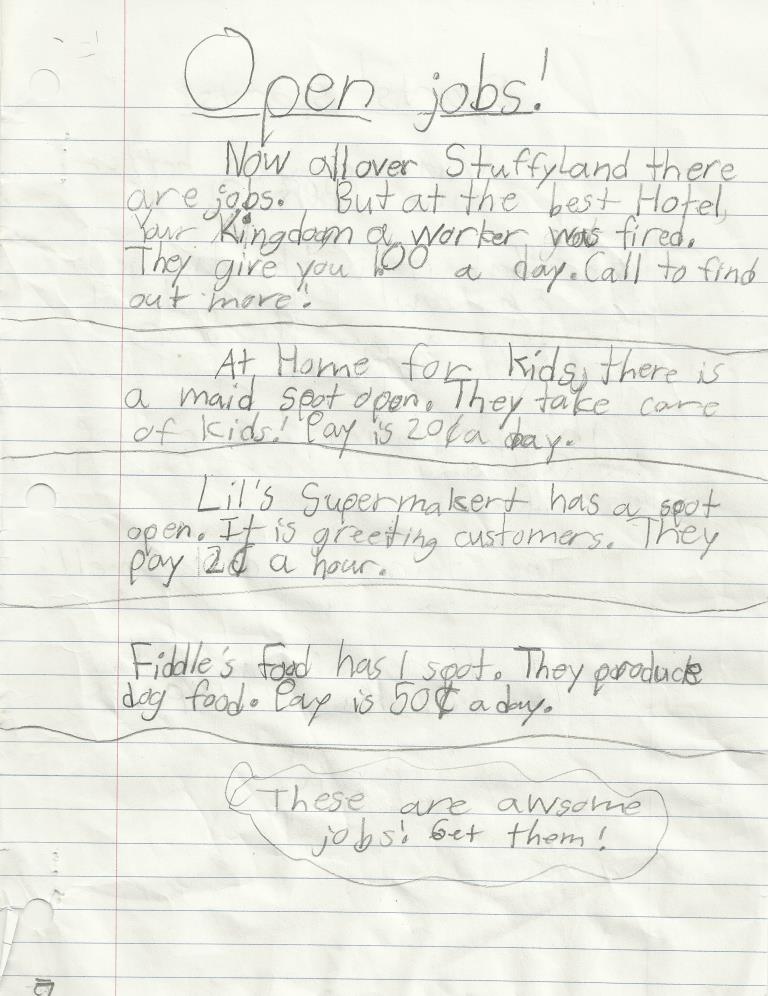 Open jobs!
Now all over Stuffyland there
are jobs. But at the best Hotel,
Your Kingdom a worker was fired.
They give you 1.00 a day. Call to find
out more!
At Home for kids, there is
a maid spot open. They take care
of kids! Pay is 20¢ a day.
Lil's Supermakert has a spot
open. It is greeting customers. They
pay 2¢ a hour.
Fiddle's food has 1 spot. They produce
dog food. Pay is 50¢ a day.
These are awsome
jobs! Get them!